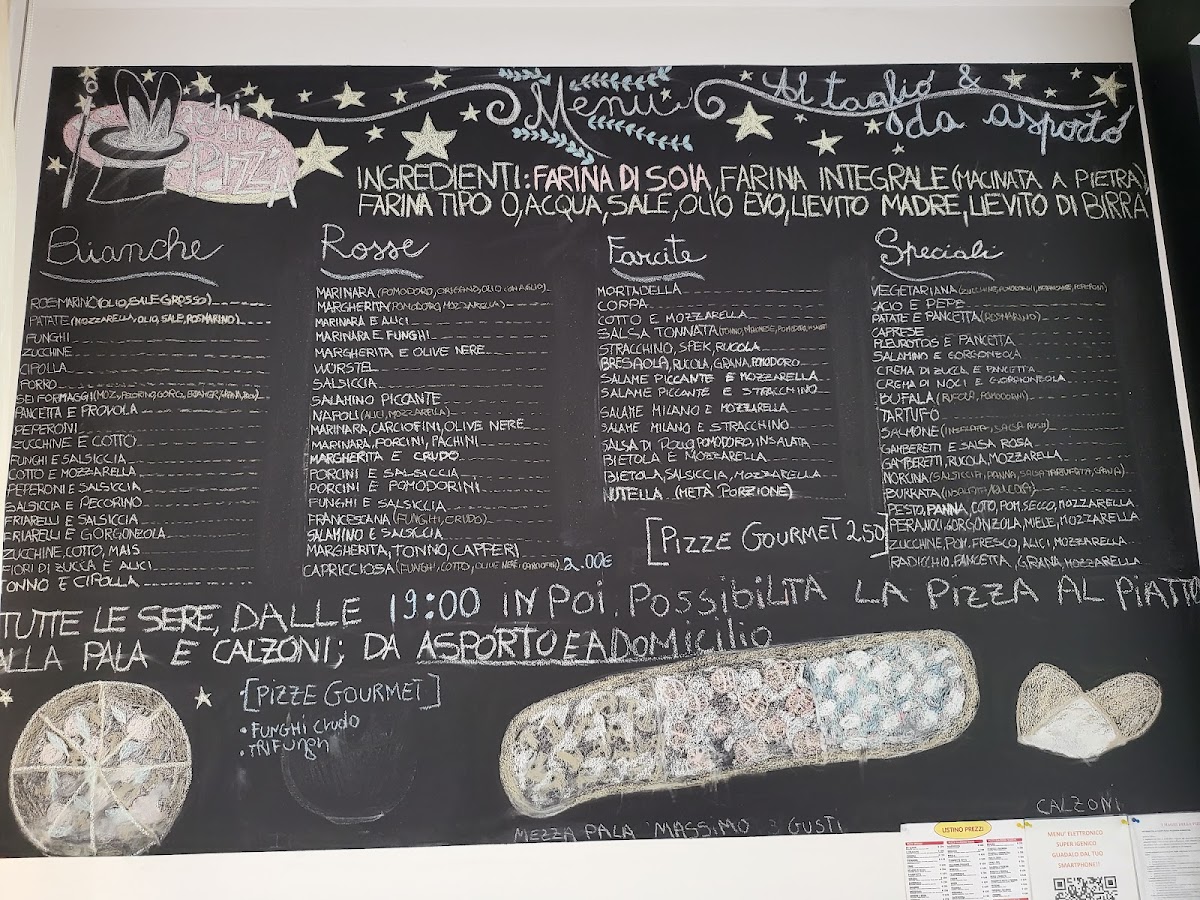 Maghi della PIZZA
Menu
Al taglio &
da asporto
INGREDIENTI: FARINA DI SOIA, FARINA INTEGRALE (MACINATA A PIETRA),
FARINA TIPO 0, ACQUA, SALE, OLIO EVO, LIEVITO MADRE, LIEVITO DI BIRRA
Bianche
ROSMARINO (OLIO, SALE GROSSO)
PATATE (MOZZARELLA, OLIO, SALE, ROSMARINO)
FUNGHI
ZUCCHINE
CIPOLLA
PORRO
SEI FORMAGGI
PANCETTA E PROVOLA
PEPERONI
ZUCCHINE E COTTO
FUNGHI E SALSICCIA
COTTO E MOZZARELLA
PEPERONI E SALSICCIA
SALSICCIA E PECORINO
FRIARELLI E SALSICCIA
FRIARELLI E GORGONZOLA
ZUCCHINE, COTTO, MAIS
FIORI DI ZUCCA E ALICI
TONNO E CIPOLLA
Rosse
MARINARA (POMODORO, ORIGANO, OLIO CON AGLIO)
MARGHERITA (POMODORO, MOZZARELLA)
MARINARA E ALICI
MARINARA E FUNGHI
MARGHERITA E OLIVE NERE
WURSTEL
SALSICCIA
SALAMINO PICCANTE
NAPOLI (ALICI, MOZZARELLA)
MARINARA, CARCIOFINI, OLIVE NERE
MARINARA, PORCINI, PACHINI
MARGHERITA E CRUDO
PORCINI E SALSICCIA
PORCINI E POMODORINI
FUNGHI E SALSICCIA
FRANCESCANA (FUNGHI, CRUDO)
SALAMINO E SALSICCIA
MARGHERITA, TONNO, CAPPERI
CAPRICCIOSA (FUNGHI, COTTO, OLIVE NERE, CARCIOFINI) 2.00€
Farcite
MORTADELLA
COPPA
COTTO E MOZZARELLA
SALSA TONNATA
STRACCHINO, SPEK, RUCOLA
BRESAOLA, RUCOLA, GRANA, POMODORO
SALAME PICCANTE E MOZZARELLA
SALAME PICCANTE E STRACCHINO
SALAME MILANO E MOZZARELLA
SALAME MILANO E STRACCHINO
SALSA DI POLLO, POMODORO, INSALATA
BIETOLA E MOZZARELLA
BIETOLA, SALSICCIA, MOZZARELLA
NUTELLA (METÀ PORZIONE)
[PIZZE GOURMET 2.50]
Speciali
VEGETARIANA
CACIO E PEPE
PATATE E PANCETTA (ROSMARINO)
CAPRESE
PLEUROTOS E PANCETTA
SALAMINO E GORGONZOLA
CREMA DI ZUCCA E PANCETTA
CREMA DI NOCI E GORGONZOLA
BUFALA (RUCOLA, POMODORINI)
TARTUFO
SALMONE (INSALATA, SALSA ROSA)
GAMBERETTI E SALSA ROSA
GAMBERETTI, RUCOLA, MOZZARELLA
NORCINA (SALSICCIA, PANNA, SALSA TARTUFATA, GRANA)
BURRATA (INSALATA/RUCOLA)
PESTO, PANNA, COTO, POM. SECCO, MOZZARELLA
PERA, NOCI, GORGONZOLA, MIELE, MOZZARELLA
ZUCCHINE, POM. FRESCO, ALICI, MOZZARELLA
RADICCHIO, PANCETTA, GRANA, MOZZARELLA
TUTTE LE SERE, DALLE 19:00 IN POI, POSSIBILITA LA PIZZA AL PIATTO
ALLA PALA E CALZONI; DA ASPORTO E A DOMICILIO
[PIZZE GOURMET]
• FUNGHI CRUDO
• TRIFUNGHI
MEZZA PALA MASSIMO 3 GUSTI
CALZONI
LISTINO PREZZI
MENU' ELETTRONICO
SUPER IGENICO
GUARDALO DAL TUO
SMARTPHONE!!